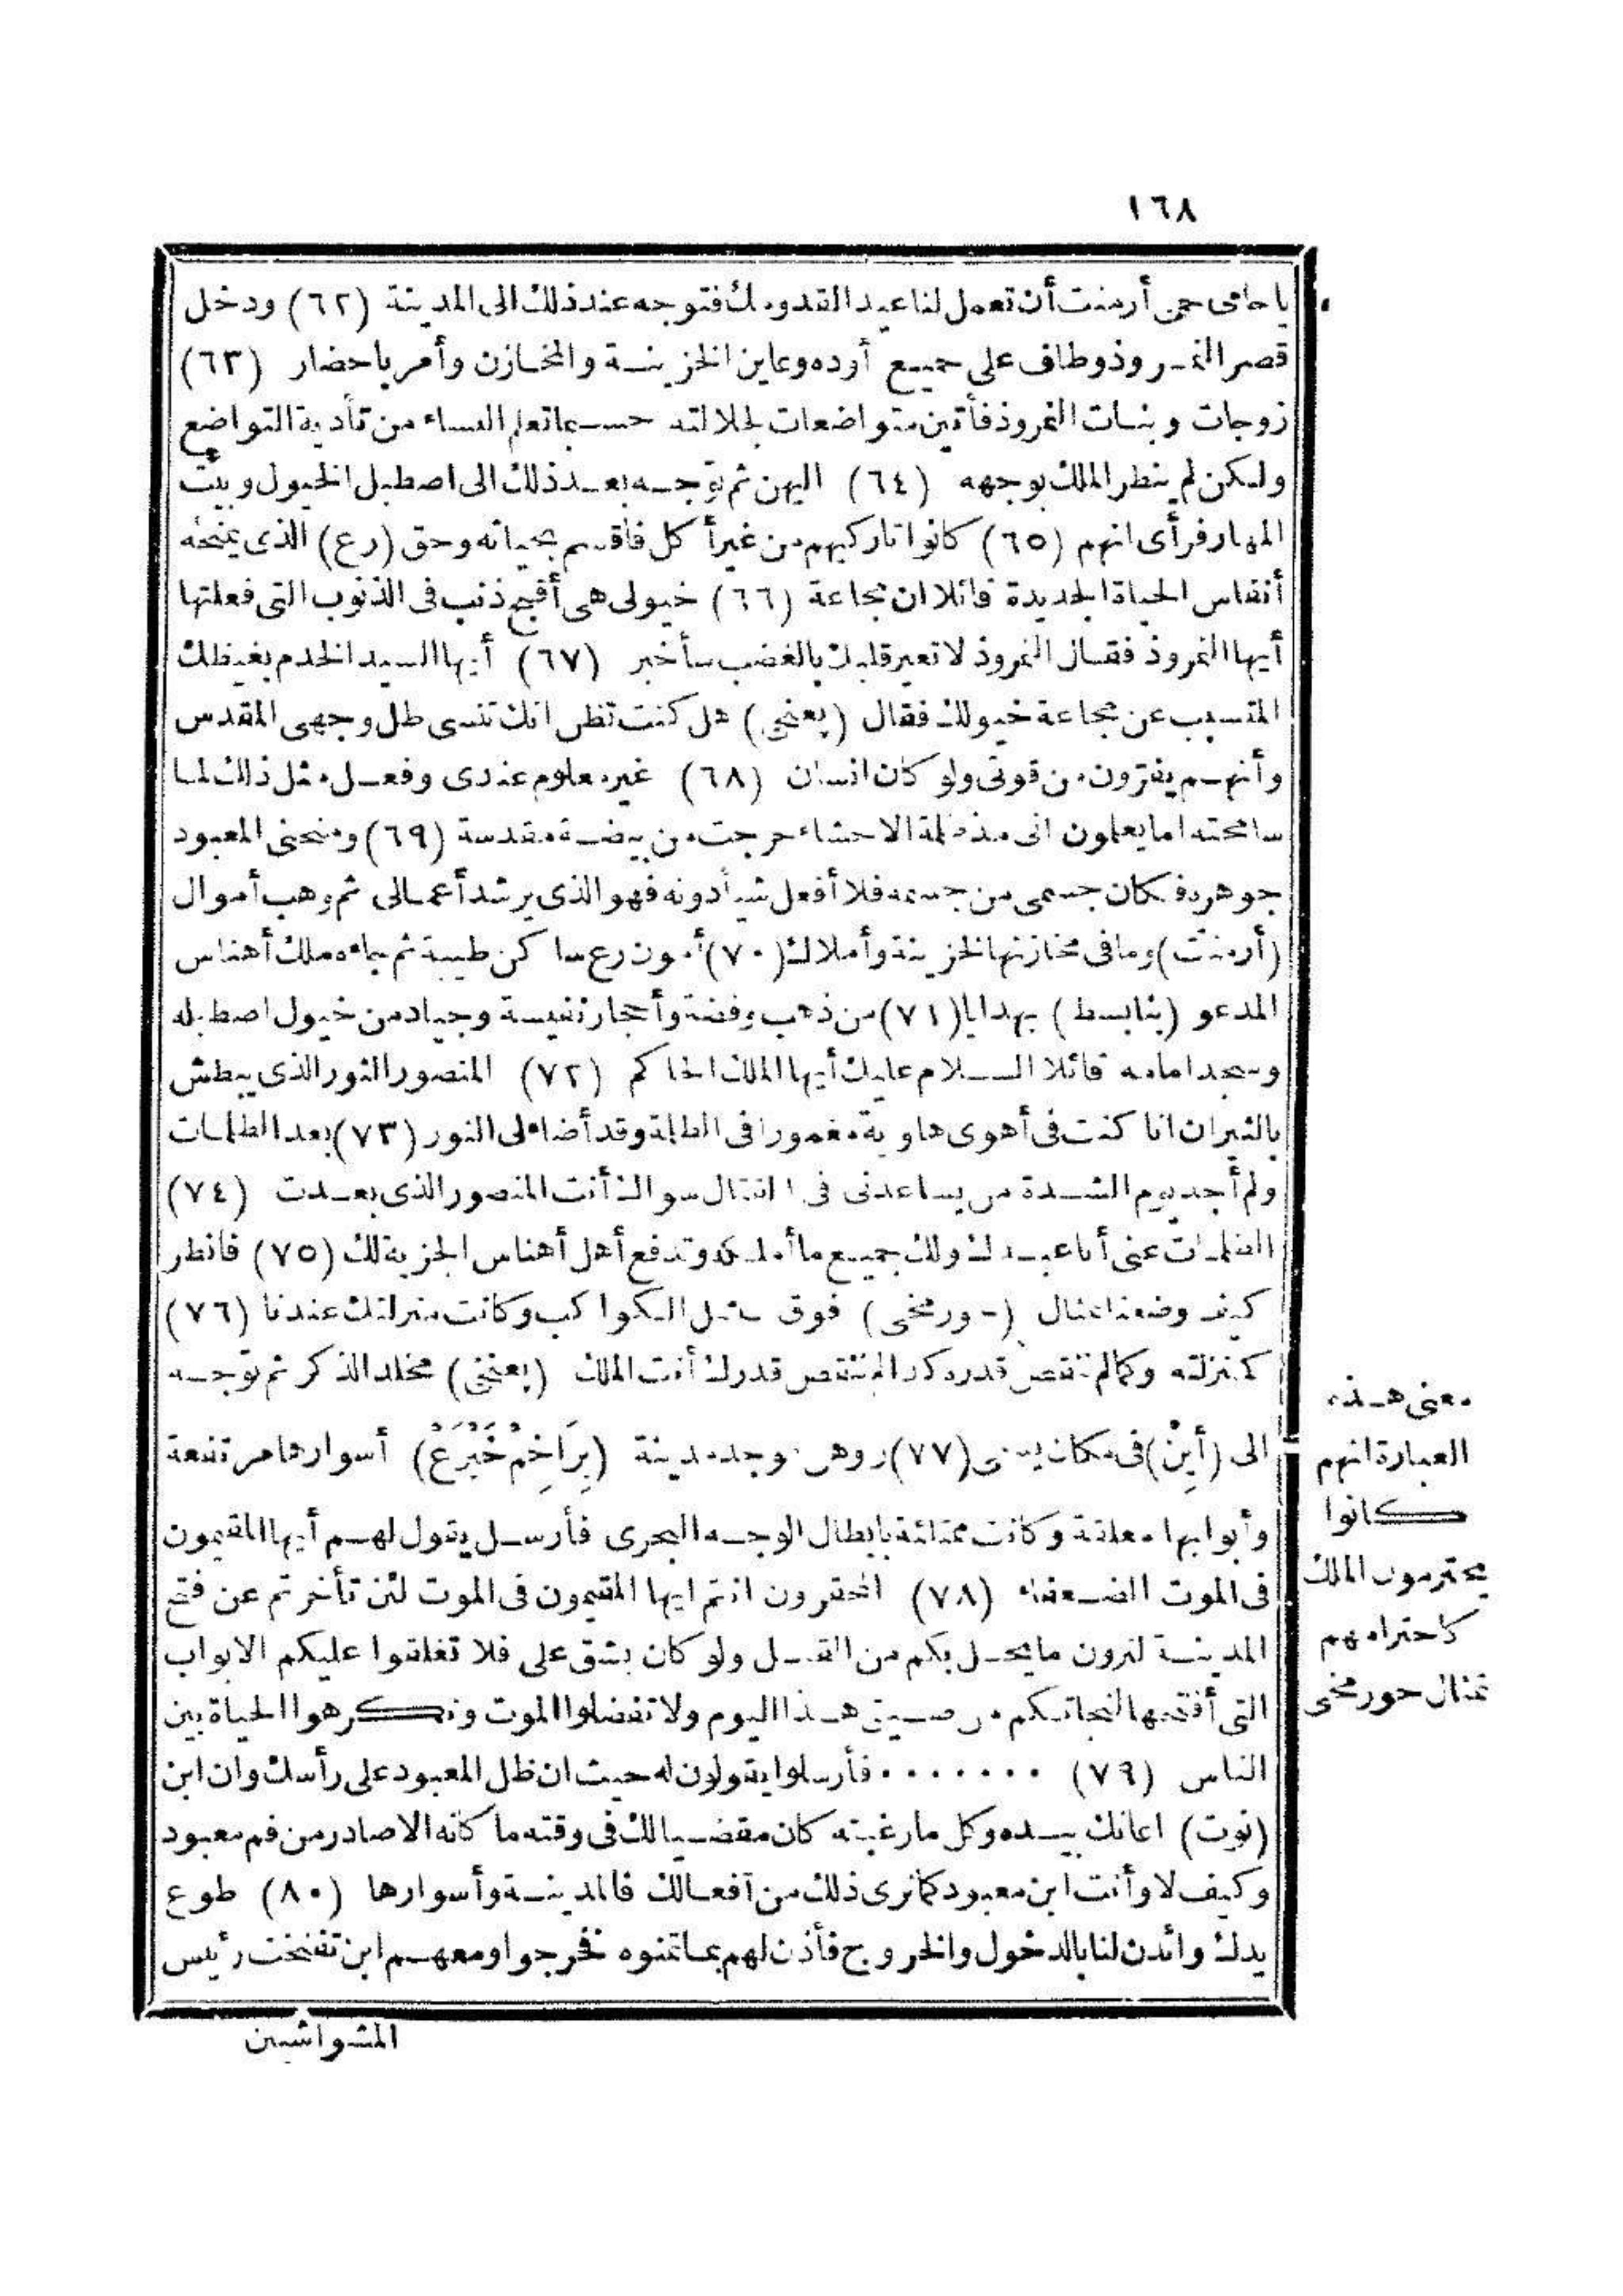 ١٦٨
يا حامى حمى أرمنت أن تعمل لنا عيد القدومك فتوجه عند ذلك الى المدينة (٦٢) ودخل
قصر النمروذ وطاف على جميع أوده وعاين الخزينة والمخازن وأمر باحضار (٦٣)
زوجات وبنات النمروذ فأتين متواضعات لجلالته حسبما تعلم النساء من تأدية التواضع
ولكن لم ينظر الملك بوجهه (٦٤) اليهن ثم توجه بعد ذلك الى اصطبل الخيول وبيت
المهار فرأى انهم (٦٥) كانوا تاركيهم من غير أكل فأقسم بحياته وحق (رع) الذى يمنحه
أنفاس الحياة الجديدة قائلا ان مجاعة (٦٦) خيولى هى أقبح ذنب فى الذنوب التى فعلتها
أيها النمروذ فقال النمروذ لا تعير قلبك بالغضب سأخبر (٦٧) أيها السيد الخدم بغيظك
المتسبب عن مجاعة خيولك فقال (بعنخى) هل كنت تظن انك تنسى ظل وجهى المقدس
وأنهم يفترون من قوتى ولو كان انسان (٦٨) غير معلوم عندى وفعل مثل ذلك لما
سامحته اما يعلمون انى منذ ظلمة الاحشاء خرجت من بيضة مقدسة (٦٩) ومنحنى المعبود
جوهره فكان جسمى من جسمه فلا أفعل شيأ دونه فهو الذى يرشد أعمالى ثم وهب أموال
(أرمنت) وما فى مخازنها لخزينة وأملاك (٧٠) أمون رع ساكن طيبة ثم جاءه ملك أهناس
المدعو (بنابسط) بهدايا (٧١) من ذهب وفضة وأحجار نفيسة وجياد من خيول اصطبله
وسجد امامه قائلا السلام عليك أيها الملك الحاكم (٧٢) المنصور الثور الذى يبطش
بالثيران انا كنت فى أهوى هاوية مغمورا فى الظلمة وقد أضاء لى النور (٧٣) بعد الظلمات
ولم أجد يوم الشدة من يساعدنى فى القتال سواك أنت المنصور الذى بعدت (٧٤)
الظلمات عنى أنا عبدك ولك جميع ما أملكه وتدفع أهل أهناس الجزية لك (٧٥) فانظر
كيف وضعنا تمثال (حورمخى) فوق مثل الكواكب وكانت منزلتك عندنا (٧٦)
كمنزلته وكما لم تنقص قدره كذا لم ننقص قدرك أنت الملك (بعنخى) مخلد الذكر ثم توجه
الى (أبِنْ) فى مكان يسمى (٧٧) روهن وجد مدينة (بِرَاخِمْ خُبَرْعْ) أسوارها مرتفعة
وأبوابها مغلقة وكانت ممتلئة بابطال الوجه البحرى فأرسل يقول لهم أيها المقيمون
فى الموت الضعفاء (٧٨) المحقرون انتم ايها المقيمون فى الموت لئن تأخرتم عن فتح
المدينة لترون ما يحل بكم من القتل ولو كان يشق على فلا تغلقوا عليكم الابواب
التى أفتحها لنجاتكم من ضيق هذا اليوم ولا تفضلوا الموت وتكرهوا الحياة بين
الناس (٧٩) ....... فأرسلوا يقولون له حيث ان ظل المعبود على رأسك وان ابن
(نوت) اعانك بيده وكل ما رغبته كان مقضيا لك فى وقته ما كأنه الا صادر من فم معبود
وكيف لا وأنت ابن معبود كما نرى ذلك من آفعالك فالمدينة وأسوارها (٨٠) طوع
يدك وائذن لنا بالدخول والخروج فأذن لهم بما تمنوه فخرجوا ومعهم ابن تفنخت رئيس
المشواشيين
معنى هذه
العبارة انهم
كانوا
يحترمون الملك
كاحترامهم
تمثال حورمخى